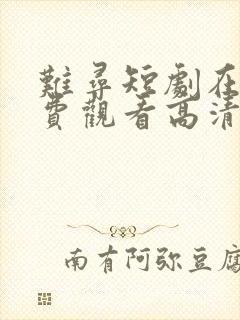 難尋短劇在
費觀看高清
南有阿弥豆腐